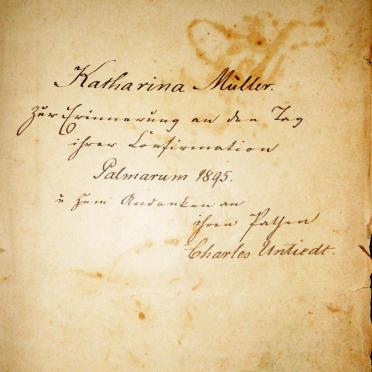 Katharina Müller.
zur Erinnerung an den Tag
ihrer Confirmation
Palmarum 1895.
u zum Andenken an
ihren Pathen
Charles Untiedt.